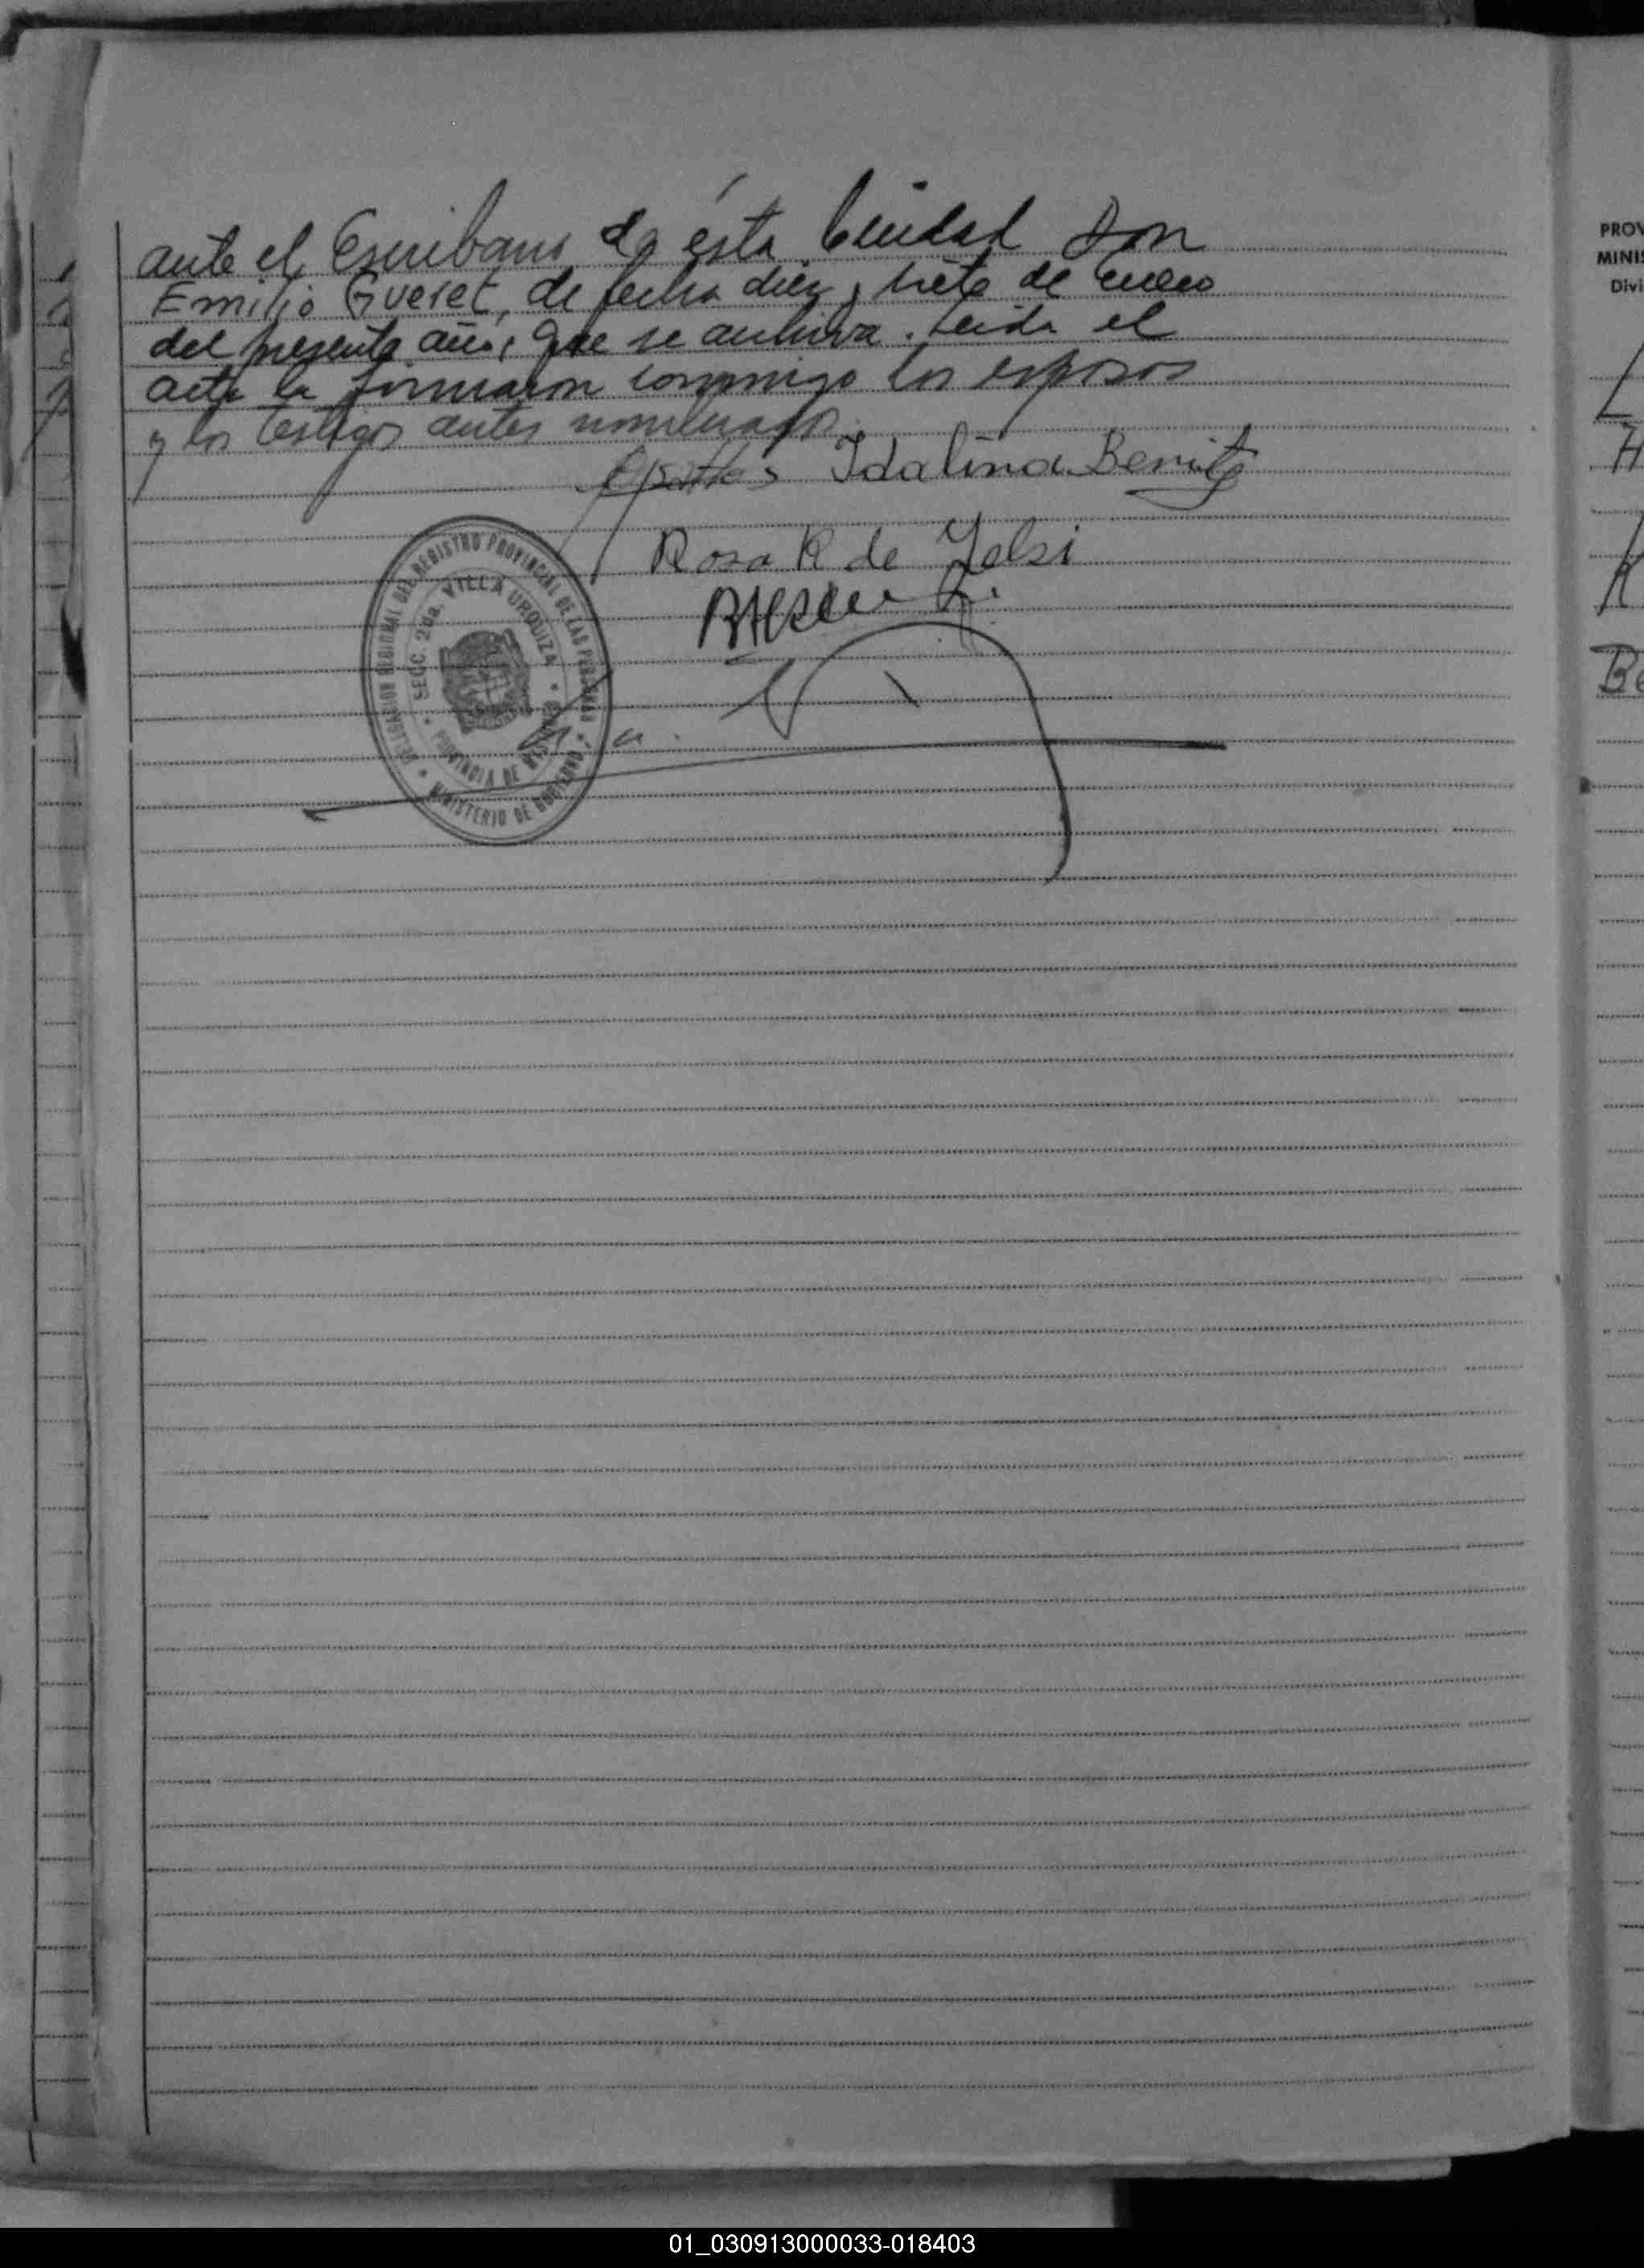 ante el Escribano de ésta Ciudad Don
Emilio Gueret, de fecha diez y siete de enero
del presente año, que se archiva. Leida el
acta la firmaron conmigo los esposos
y los testigos antes nombrados.
Idalina Benitz
Rosa R de Yelsi
DELEGACION REGIONAL DEL REGISTRO PROVINCIAL DE LAS PERSONAS
SECC. 2da. VILLA URQUIZA
PROVINCIA DE
MINISTERIO DE GOBIERNO
PROV
MINIS
Divi
H
K
Be
01_030913000033-018403